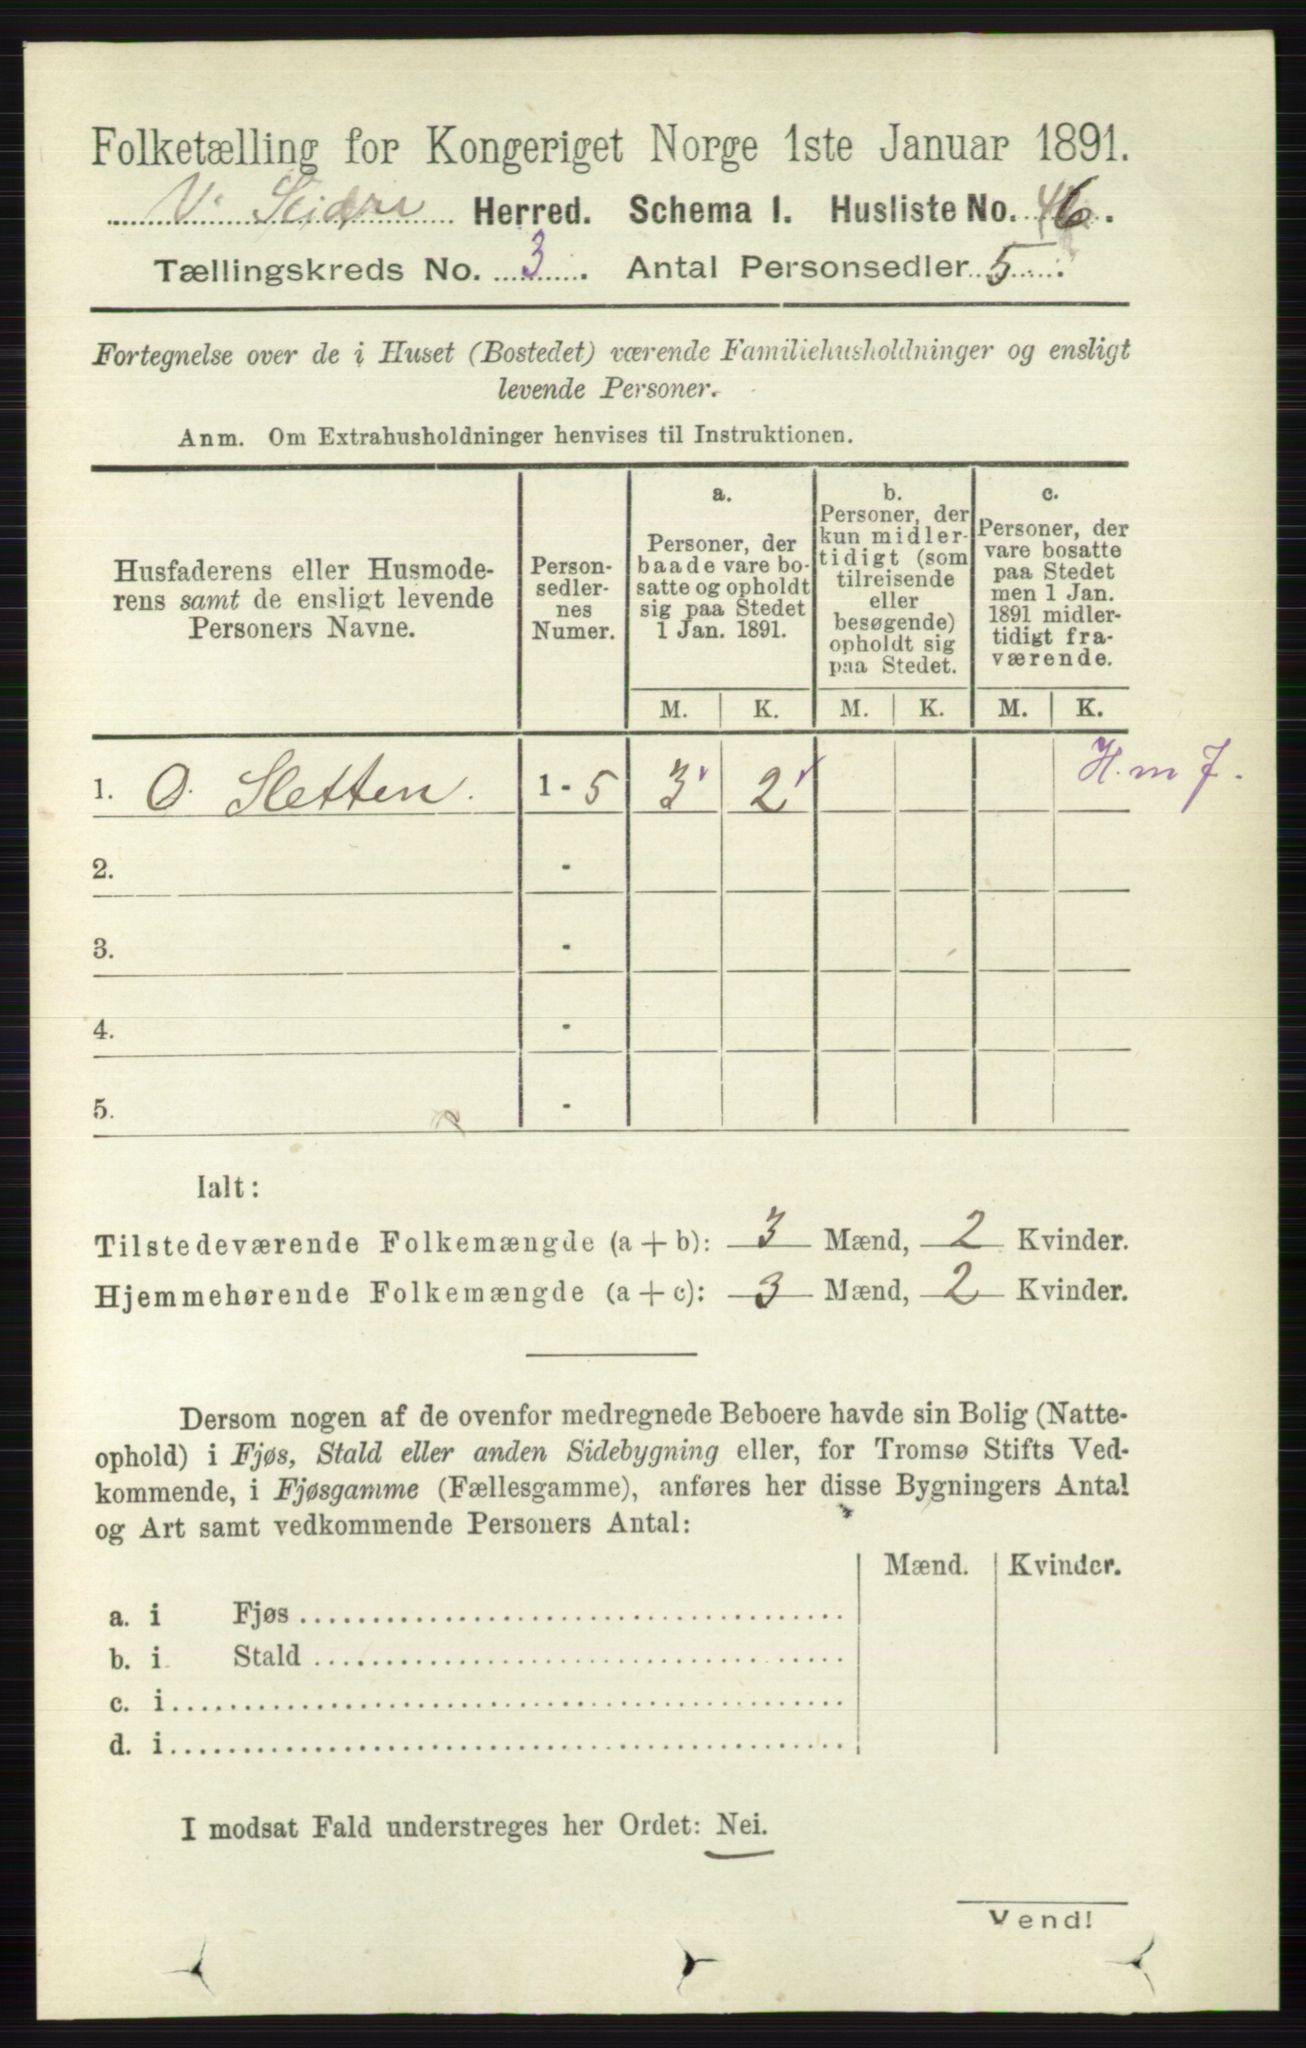 Folketælling for Kongeriget Norge 1ste Januar 1891.
V. Slidre Herred. Schema 1. Husliste No. 46.
Tællingskreds No. 3. Antal Personsedler 5.
Fortegnelse over de i Huset (Bostedet) værende Familiehusholdninger og ensligt
levende Personer.
Anm. Om Extrahusholdninger henvises til Instruktionen.
Husfaderens eller Husmode-
rens samt de ensligt levende
Personers Navne.
Person-
sedler-
nes
Numer.
a.
Personer, der
baade vare bo-
satte og opholdt
sig paa Stedet
1 Jan. 1891.
b.
Personer, der
kun midler-
tidigt (som
tilreisende
eller
besøgende)
opholdt sig
paa Stedet.
c.
Personer, der
vare bosatte
paa Stedet
men 1 Jan.
1891 midler-
tidigt fra-
værende.
M. K. M. K. M. K.
1. O. Sletten. 1 - 5 3 2 H. m f.
2. -
3. -
4. -
5. -
Ialt:
Tilstedeværende Folkemængde (a + b): 3 Mænd, 2 Kvinder.
Hjemmehørende Folkemængde (a + c): 3 Mænd, 2 Kvinder.
Dersom nogen af de ovenfor medregnede Beboere havde sin Bolig (Natte-
ophold) i Fjøs, Stald eller anden Sidebygning eller, for Tromsø Stifts Ved-
kommende, i Fjøsgamme (Fællesgamme), anføres her disse Bygningers Antal
og Art samt vedkommende Personers Antal:
Mænd. Kvinder.
a. i Fjøs
b. i Stald
c. i
d. i
I modsat Fald understreges her Ordet: Nei.
Vend!